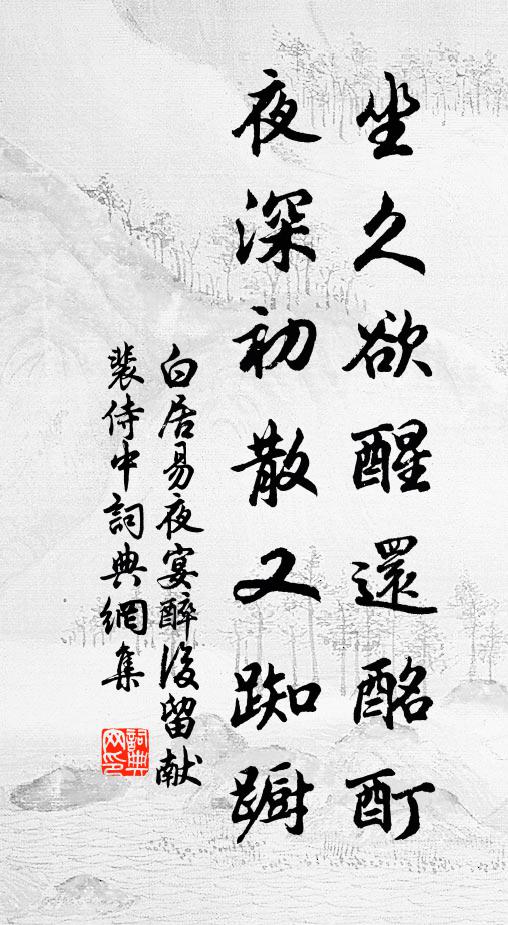 坐久欲醒還酩酊
夜深初散又踟躕
白居易夜宴醉後留献
裴侍中詞典網集
詞典網印